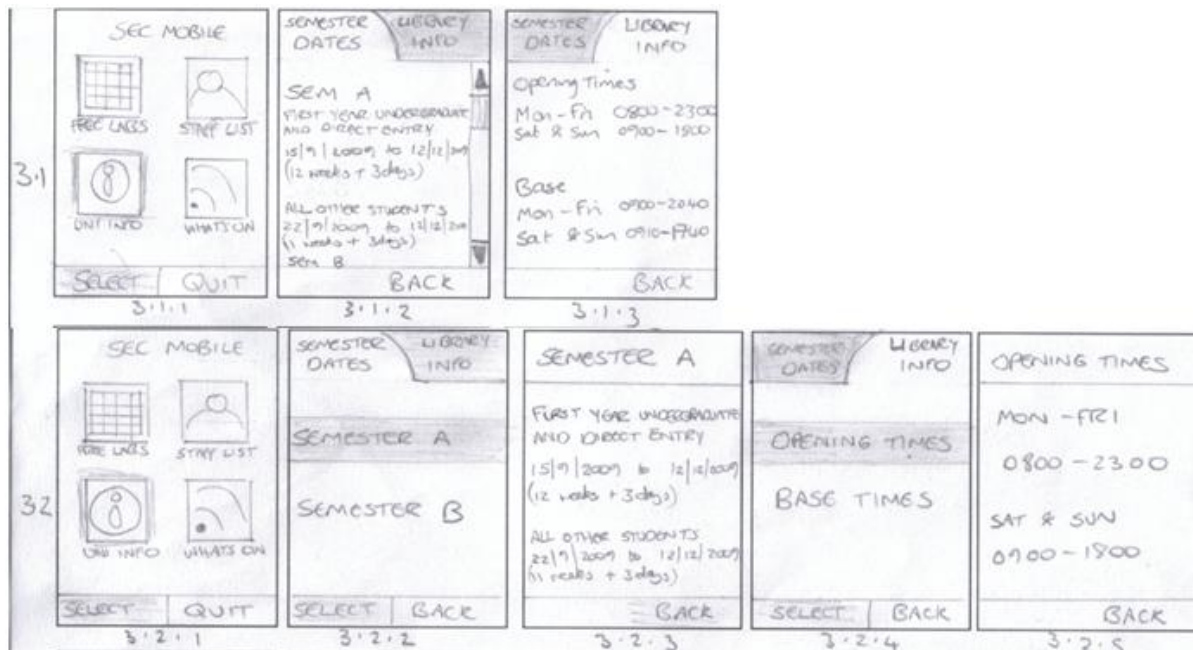 3.1
SEC MOBILE
FREE LABS STAFF LIST
UNI INFO WHATS ON
SELECT QUIT
3.1.1
SEMESTER DATES LIBRARY INFO
SEM A
FIRST YEAR UNDERGRADUATE
AND DIRECT ENTRY
15/9/2009 to 12/12/2009
(12 weeks + 3days)
ALL OTHER STUDENTS
22/9/2009 to 12/12/2009
(11 weeks + 3days)
SEM B
BACK
3.1.2
SEMESTER DATES LIBRARY INFO
Opening Times
Mon-Fri 0800-2300
Sat & Sun 0900-1800
Base
Mon-Fri 0900-2040
Sat & Sun 0910-1740
BACK
3.1.3
3.2
SEC MOBILE
FREE LABS STAFF LIST
UNI INFO WHATS ON
SELECT QUIT
3.2.1
SEMESTER DATES LIBRARY INFO
SEMESTER A
SEMESTER B
SELECT BACK
3.2.2
SEMESTER A
FIRST YEAR UNDERGRADUATE
AND DIRECT ENTRY
15/9/2009 to 12/12/2009
(12 weeks + 3days)
ALL OTHER STUDENTS
22/9/2009 to 12/12/2009
(11 weeks + 3days)
BACK
3.2.3
SEMESTER DATES LIBRARY INFO
OPENING TIMES
BASE TIMES
SELECT BACK
3.2.4
OPENING TIMES
MON-FRI
0800-2300
SAT & SUN
0900-1800
BACK
3.2.5